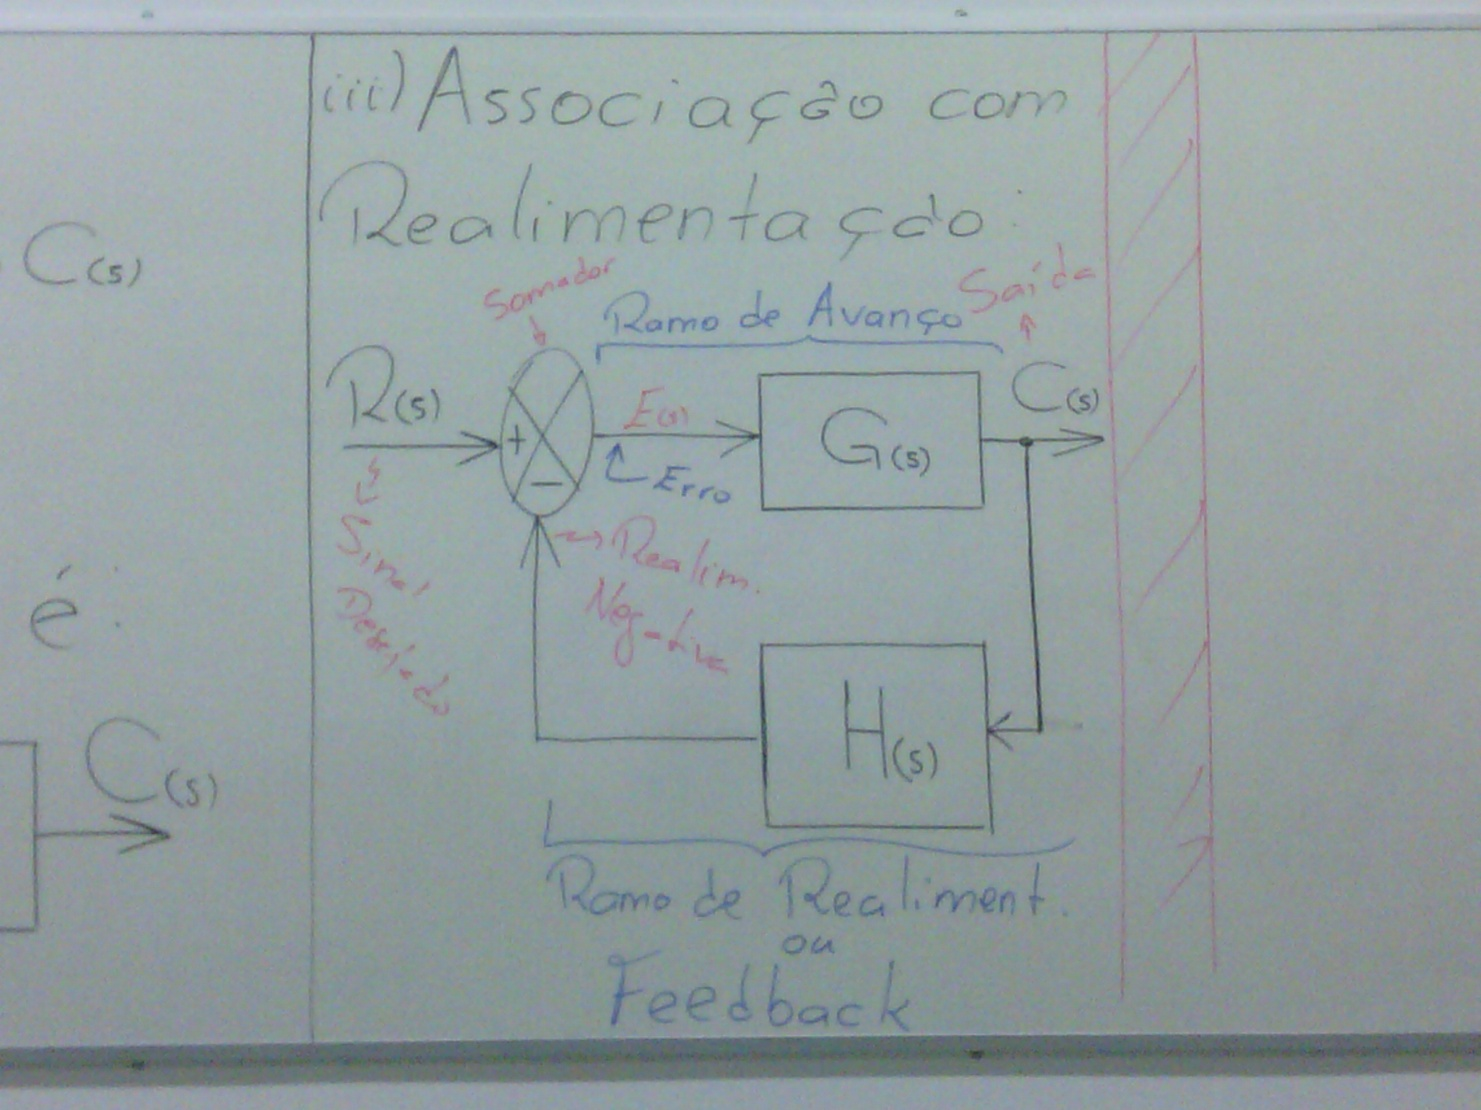 C(s)
é:
C(s)
iii) Associação com
Realimentação:
Somador
Ramo de Avanço
Saída
R(s)
+
−
E(s)
Erro
G(s)
C(s)
Sinal
Desejado
Realim.
Negativa
H(s)
Ramo de Realiment.
ou
Feedback